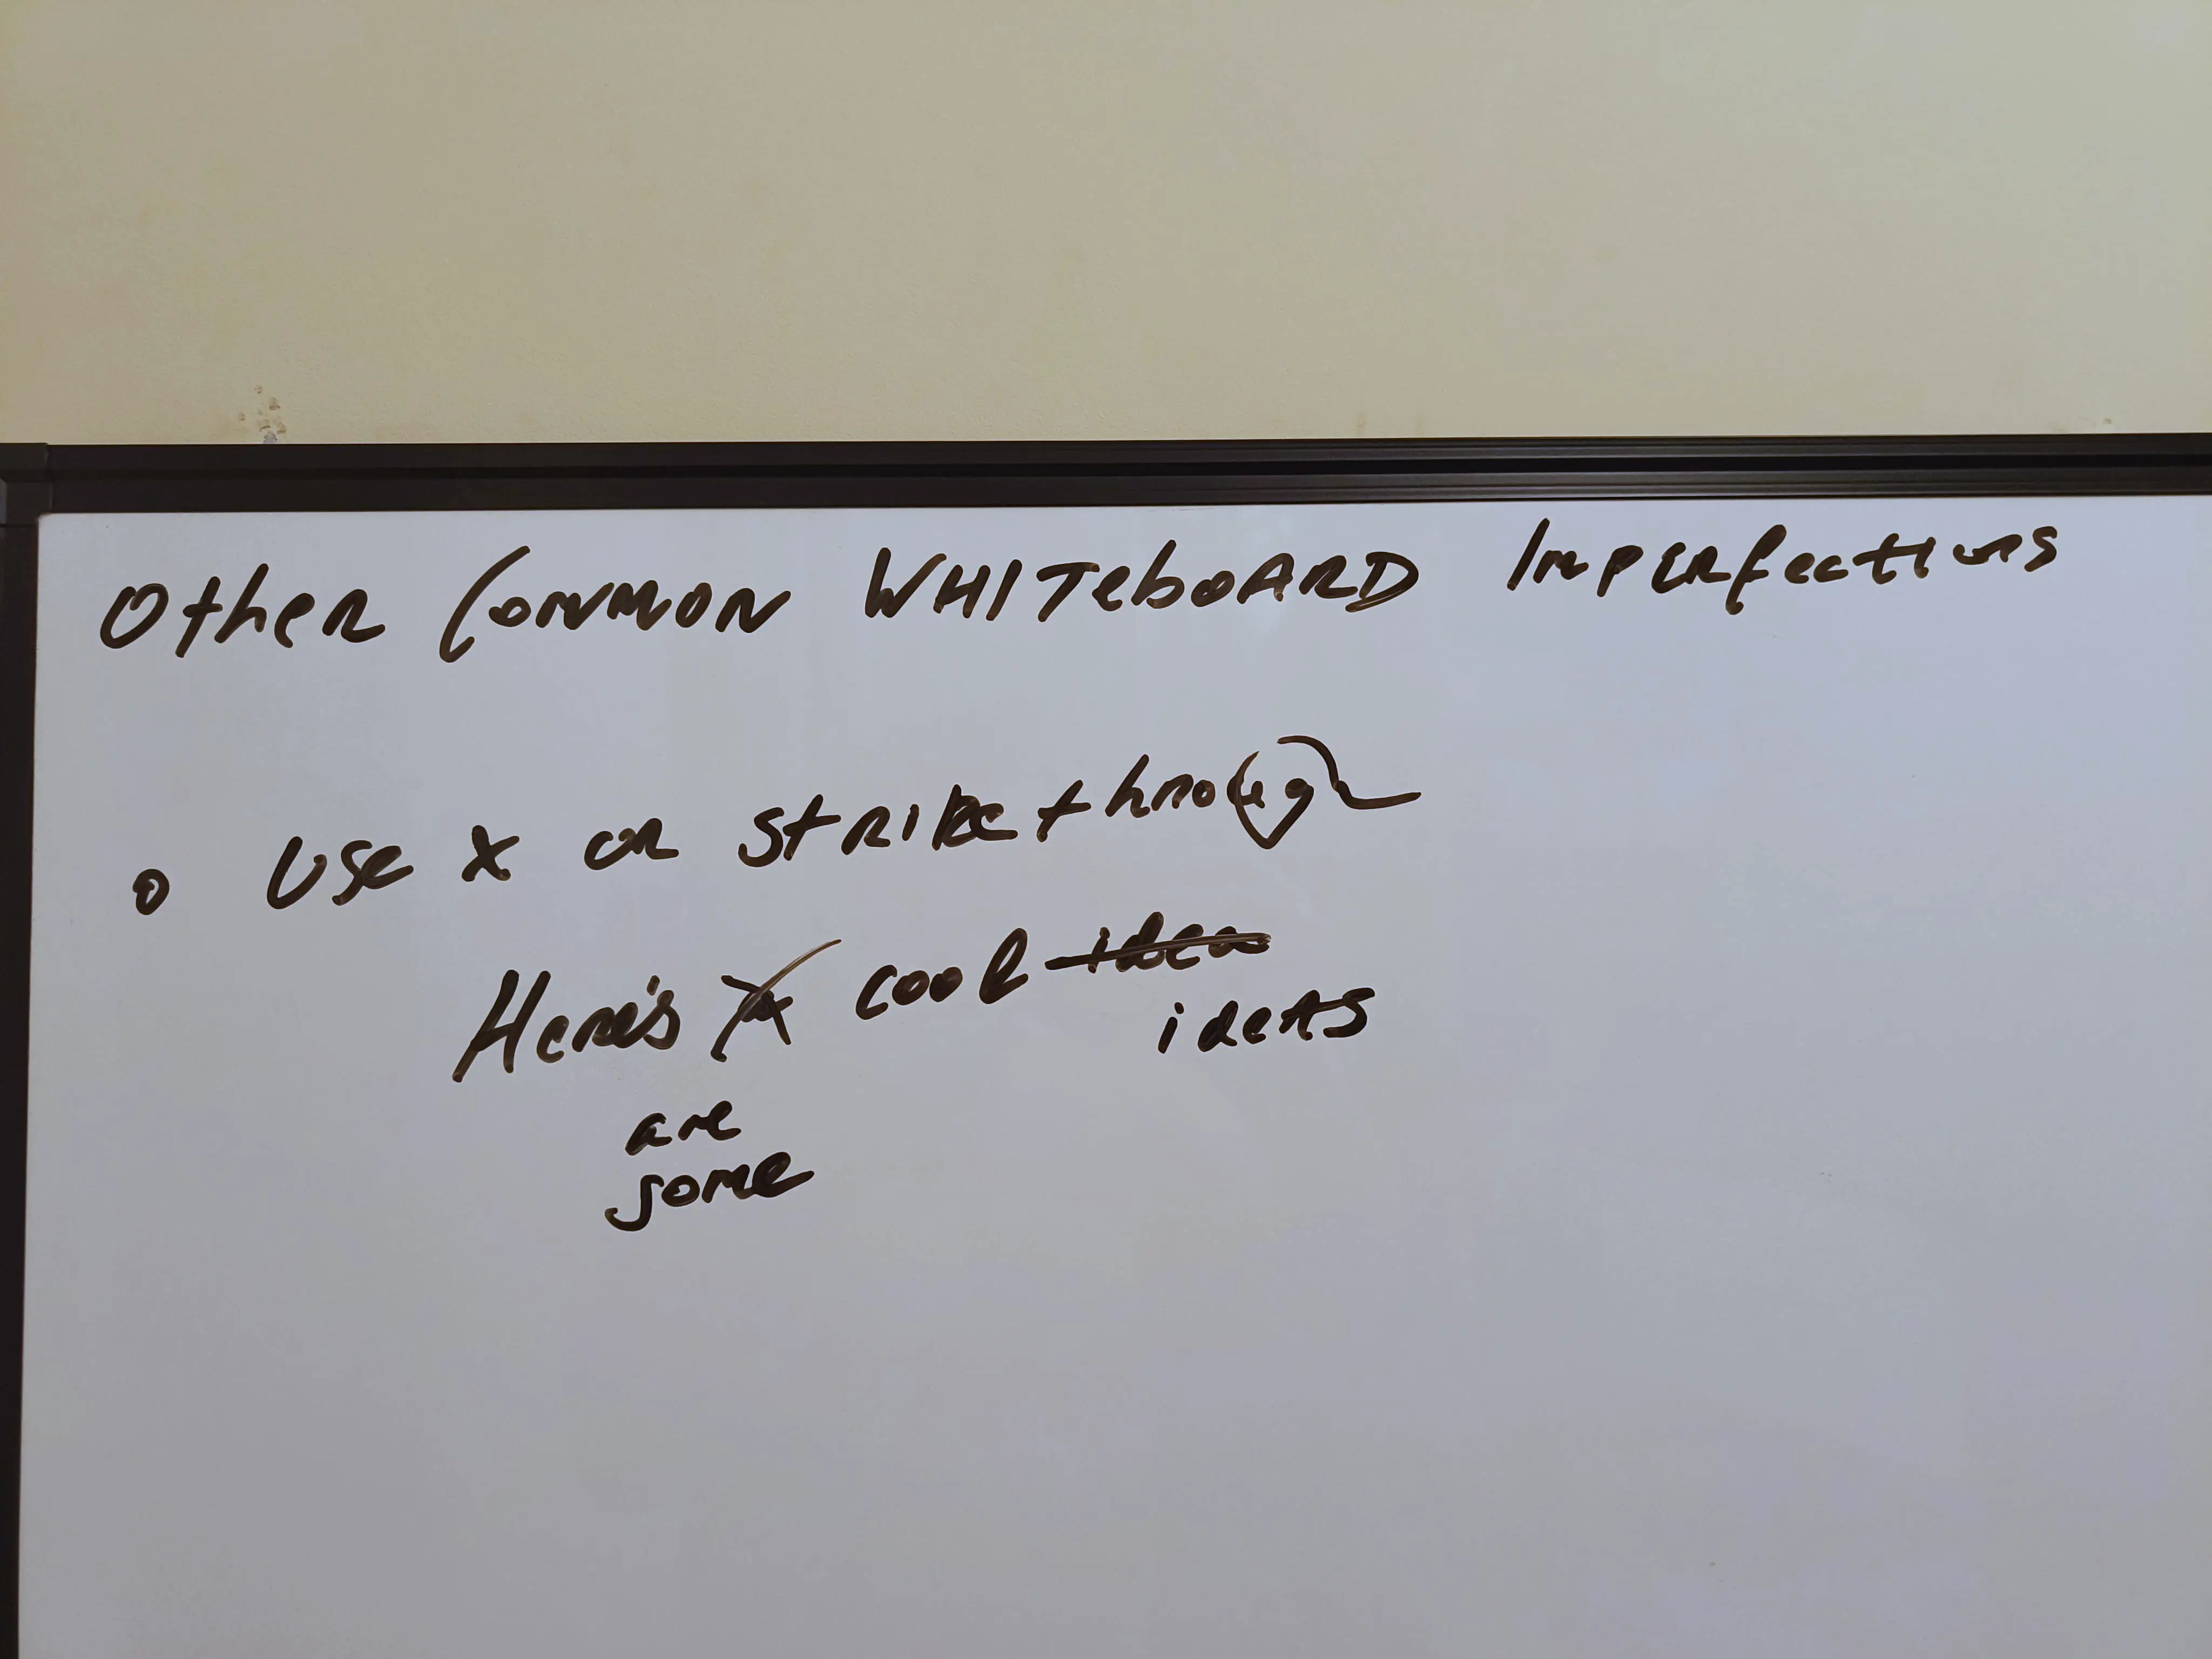 Other Common WHITeboARD Imperfections
o Use x or strikethrough
Here's a cool idea
ideas
are
some